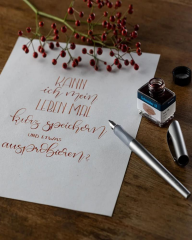 KANN
ich mein
LEBEN MAL
kurz speichern
UND ETWAS
ausprobieren?